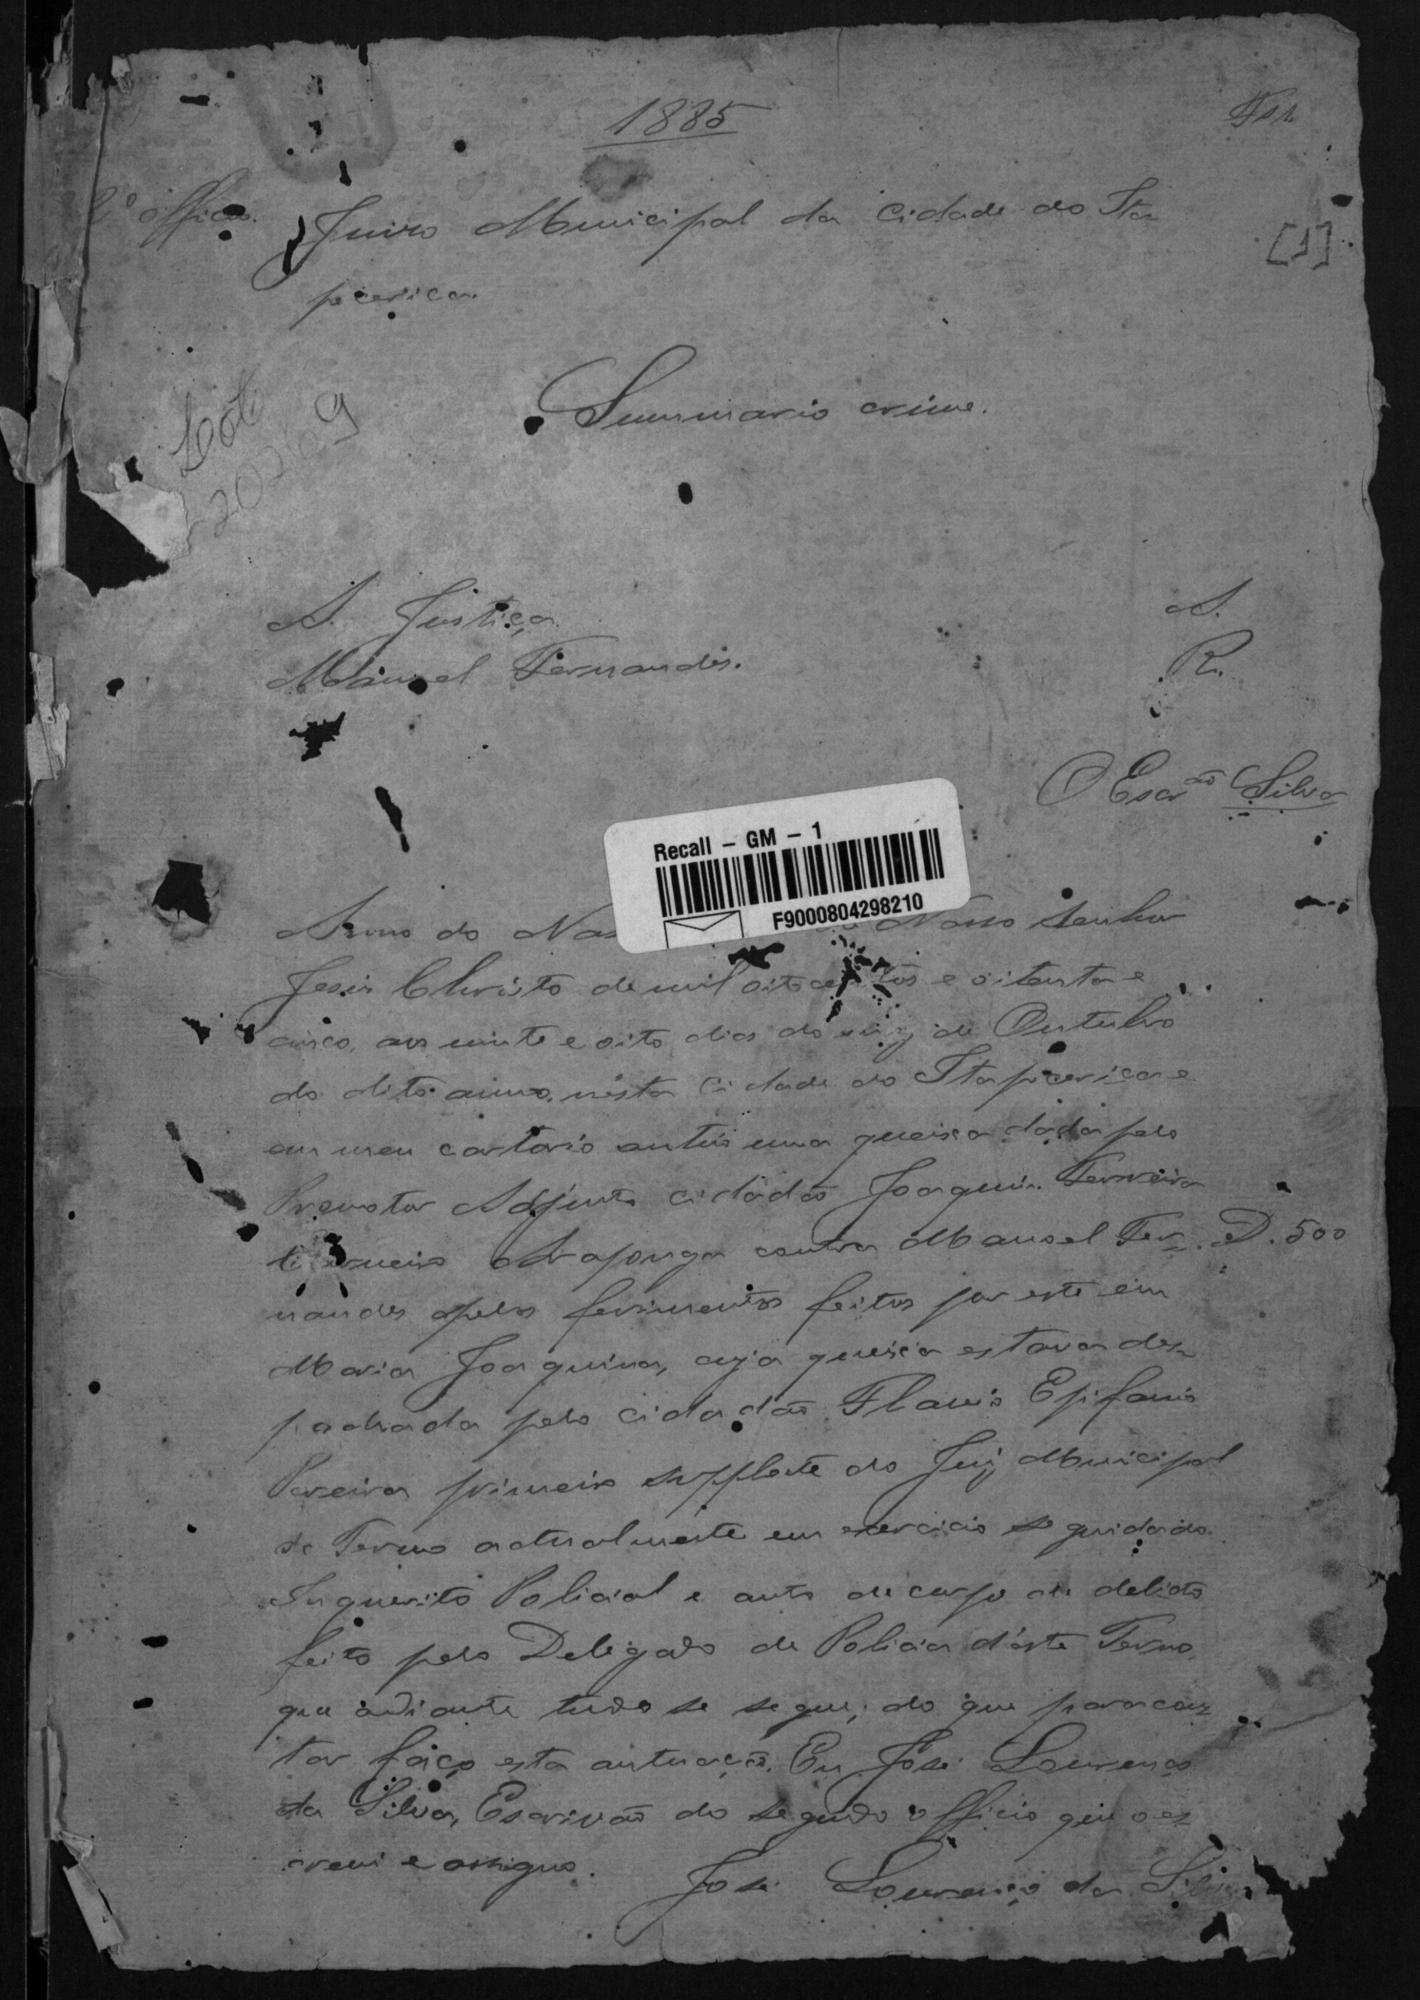 1885
Fs 1
2º officio.
Juizo Municipal da Cidade do Ita
[1]
pecerica.
Summario crime.
20269
A Justiça A.
Manoel Fernandes. R.
O Escrão Silva
Recall – GM – 1
F9000804298210
Anno do Nas Nosso Senhor
Jesus Christo de mil oitocentos e oitenta e
cinco, aos vinte e oito dias do mez de Outubro
do dito anno, nesta Cidade do Itapecerica e
em meu cartorio autuei uma queixa dada pelo
Promotor Adjunto cidadão Joaquim Ferreira
Carneiro Araponga contra Manoel Fer- D. 500
nandes pelos ferimentos feitos por este em
Maria Joaquina, cuja queixa estava des-
pachada pelo cidadão Flavio Epifanio
Pereira primeiro supplente do Juiz Municipal
do Termo actualmente em exercicio seguida do
Inquerito Policial e auto de corpo de delicto
feito pelo Delegado de Policia d'este Termo,
que adiante tudo se segue; do que para cons-
tar faço esta autuação. Eu José Lourenço
da Silva, Escrivão do segundo officio que o es-
crevi e assigno.
José Lourenço da Silva